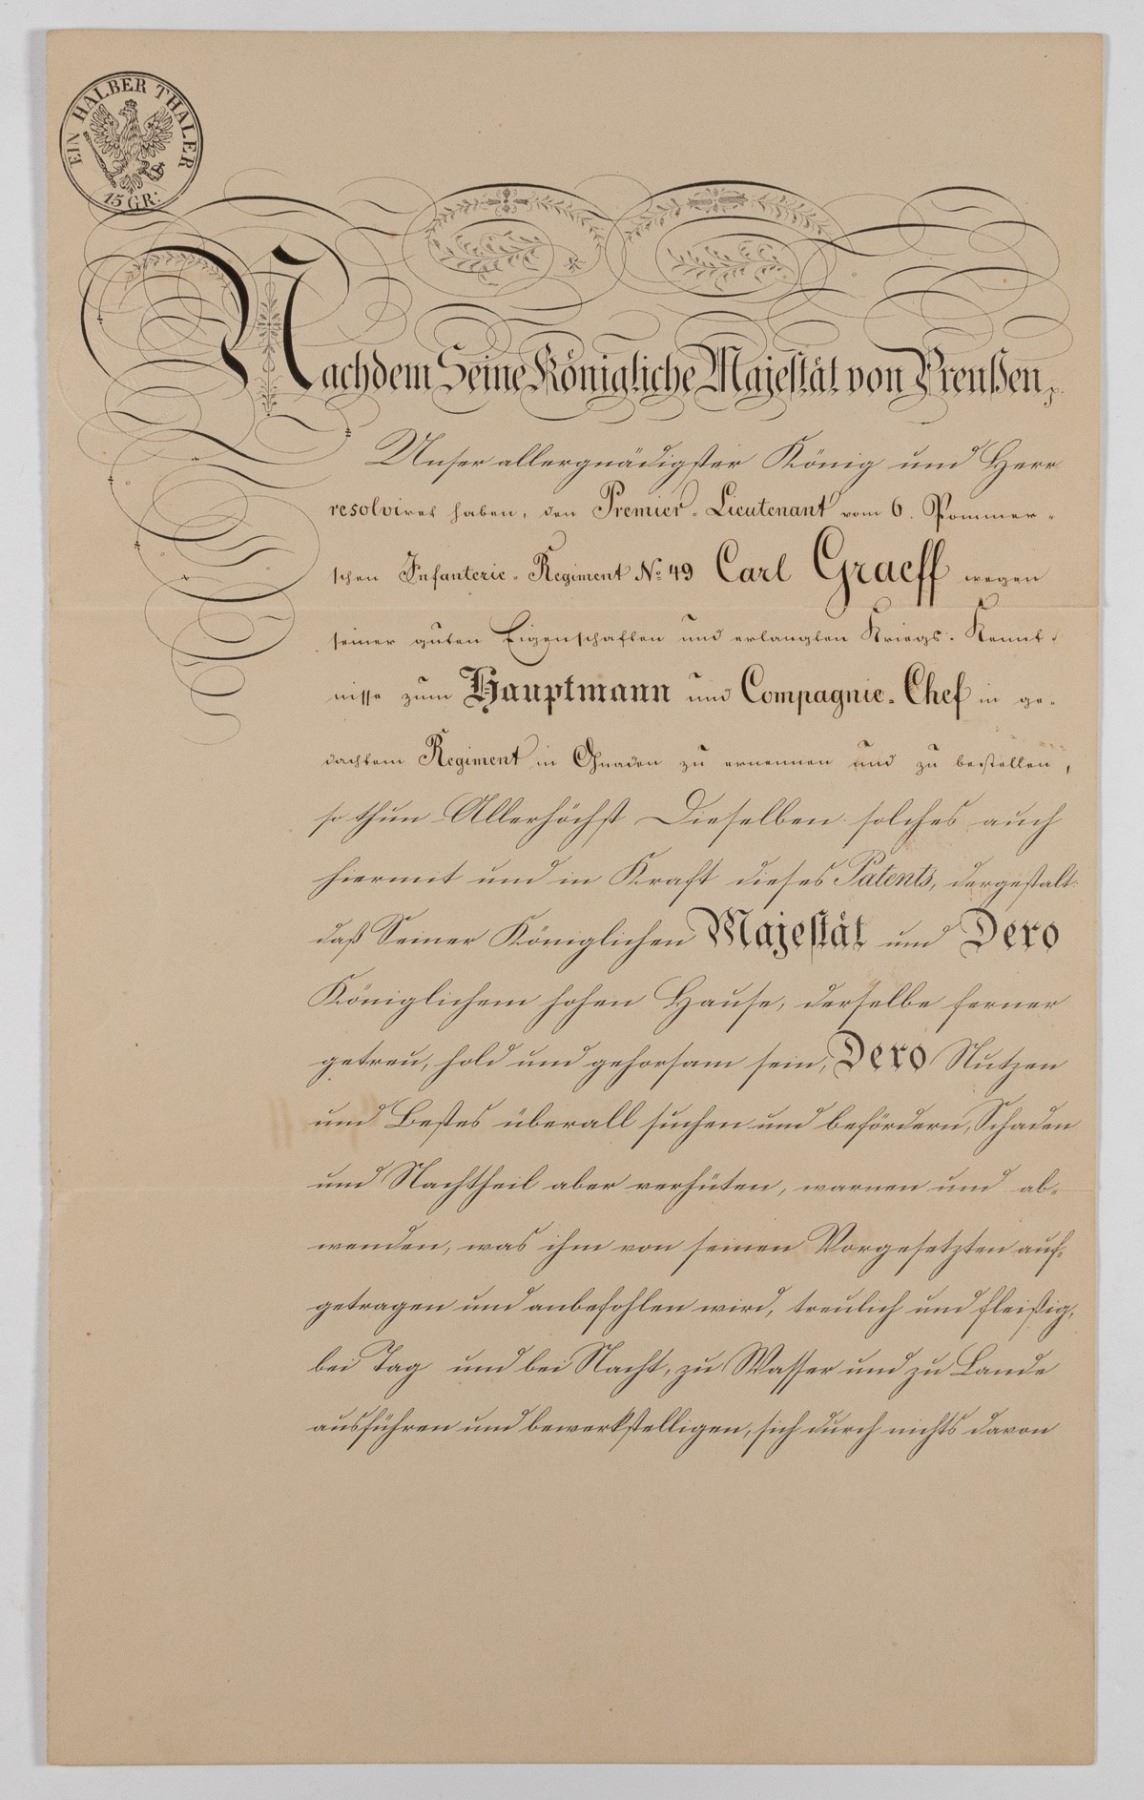 EIN HALBER THALER
15 GR:
Nachdem Seine Königliche Majestät von Preußen,
Unser allergnädigster König und Herr
resolviret haben, den Premier-Lieutenant vom 6. Pommer-
schen Infanterie-Regiment No 49 Carl Graeff wegen
seiner guten Eigenschaften und erlangten Kriegs-Kennt-
nisse zum Hauptmann und Compagnie-Chef in ge-
dachtem Regiment in Gnaden zu ernennen und zu bestellen,
so thun Allerhöchst Dieselben solches auch
hiermit und in Kraft dieses Patents, dergestalt:
daß Seiner Königlichen Majestät und Dero
Königlichem hohen Hause, derselbe ferner
getreu, hold und gehorsam sein, Dero Nutzen
und Bestes überall suchen und befördern, Schaden
und Nachtheil aber verhüten, warnen und ab-
wenden, was ihm von seinen Vorgesetzten auf-
getragen und anbefohlen wird, treulich und fleißig,
bei Tag und bei Nacht, zu Wasser und zu Lande
ausführen und bewerkstelligen, sich durch nichts davon